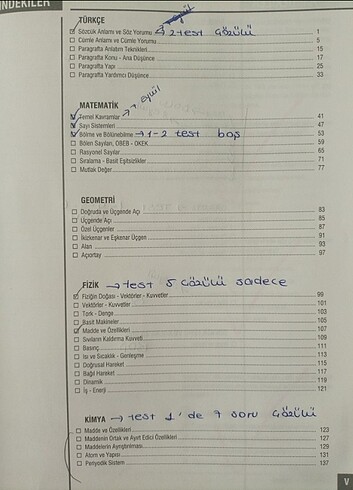 İNDEKİLER
TÜRKÇE
Eylül
Sözcük Anlamı ve Söz Yorumu → 2 test çözülü 1
Cümle Anlamı ve Cümle Yorumu 5
Paragrafta Anlatım Teknikleri 15
Paragrafta Konu - Ana Düşünce 17
Paragrafta Yapı 25
Paragrafta Yardımcı Düşünce 33
MATEMATİK
Temel Kavramlar → Eylül 41
Sayı Sistemleri 47
Bölme ve Bölünebilme → 1-2 test boş 53
Bölen Sayıları, OBEB - OKEK 59
Rasyonel Sayılar 65
Sıralama - Basit Eşitsizlikler 71
Mutlak Değer 77
GEOMETRİ
Doğruda ve Üçgende Açı 83
Üçgende Açı 85
Özel Üçgenler 87
İkizkenar ve Eşkenar Üçgen 91
Alan 93
Açıortay 97
FİZİK → test 5 çözülü sadece
Fiziğin Doğası - Vektörler - Kuvvetler 99
Vektörler - Kuvvetler 101
Tork - Denge 103
Basit Makineler 105
Madde ve Özellikleri 107
Sıvıların Kaldırma Kuvveti 109
Basınç 111
Isı ve Sıcaklık - Genleşme 113
Doğrusal Hareket 115
Bağıl Hareket 117
Dinamik 119
İş - Enerji 121
KİMYA → test 1'de 9 soru çözülü
Madde ve Özellikleri 123
Maddenin Ortak ve Ayırt Edici Özellikleri 127
Maddelerin Ayrıştırılması 129
Atom ve Yapısı 131
Periyodik Sistem 137
V